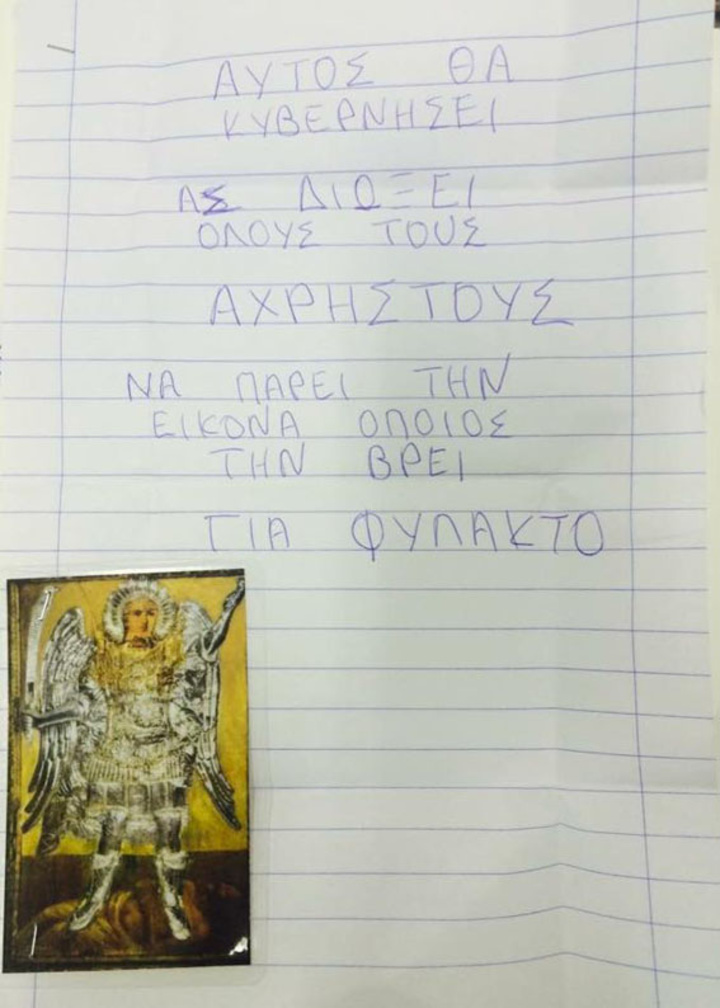 ΑΥΤΟΣ ΘΑ
ΚΥΒΕΡΝΗΣΕΙ
ΑΣ ΔΙΩΞΕΙ
ΟΛΟΥΣ ΤΟΥΣ
ΑΧΡΗΣΤΟΥΣ
ΝΑ ΠΑΡΕΙ ΤΗΝ
ΕΙΚΟΝΑ ΟΠΟΙΟΣ
ΤΗΝ ΒΡΕΙ
ΓΙΑ ΦΥΛΑΚΤΟ